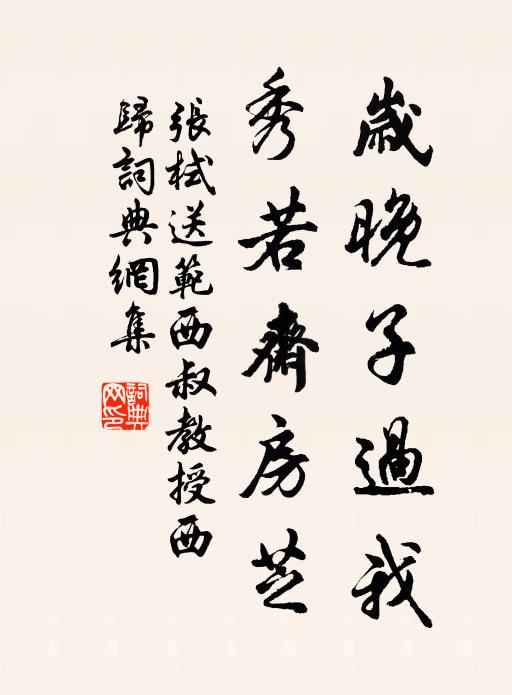 歲晚子過我
秀若齋房芝
張栻送範西叔教授西
歸詞典網集
詞典网印